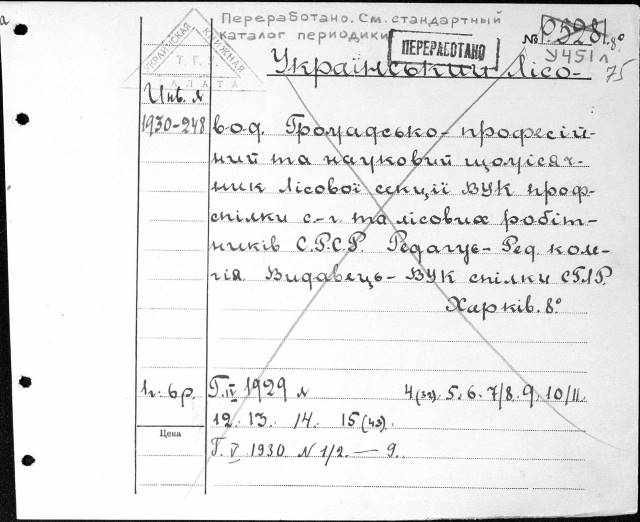 Переработано. См. стандартный
каталог периодики
ПЕРЕРАБОТАНО
УКРАИНСКАЯ КНИЖНАЯ
ПАЛАТА
№
8°
У451л
75
Український Лісо-
Инв. №
1930-248
вод. Громадсько-професій-
ний та науковий щомісяч-
ник Лісової секції ВУК проф-
спілки с.-г. та лісових робіт-
ників С.Р.С.Р. Редагує- Ред. коле-
гія. Видавець- ВУК спілки СГЛР.
Харків. 8°
1 л. 6 р. Г. IV 1929 № 4(32). 5. 6. 7/8. 9. 10/11.
12. 13. 14. 15(43).
Цена
Г. V 1930 № 1/2. — 9.